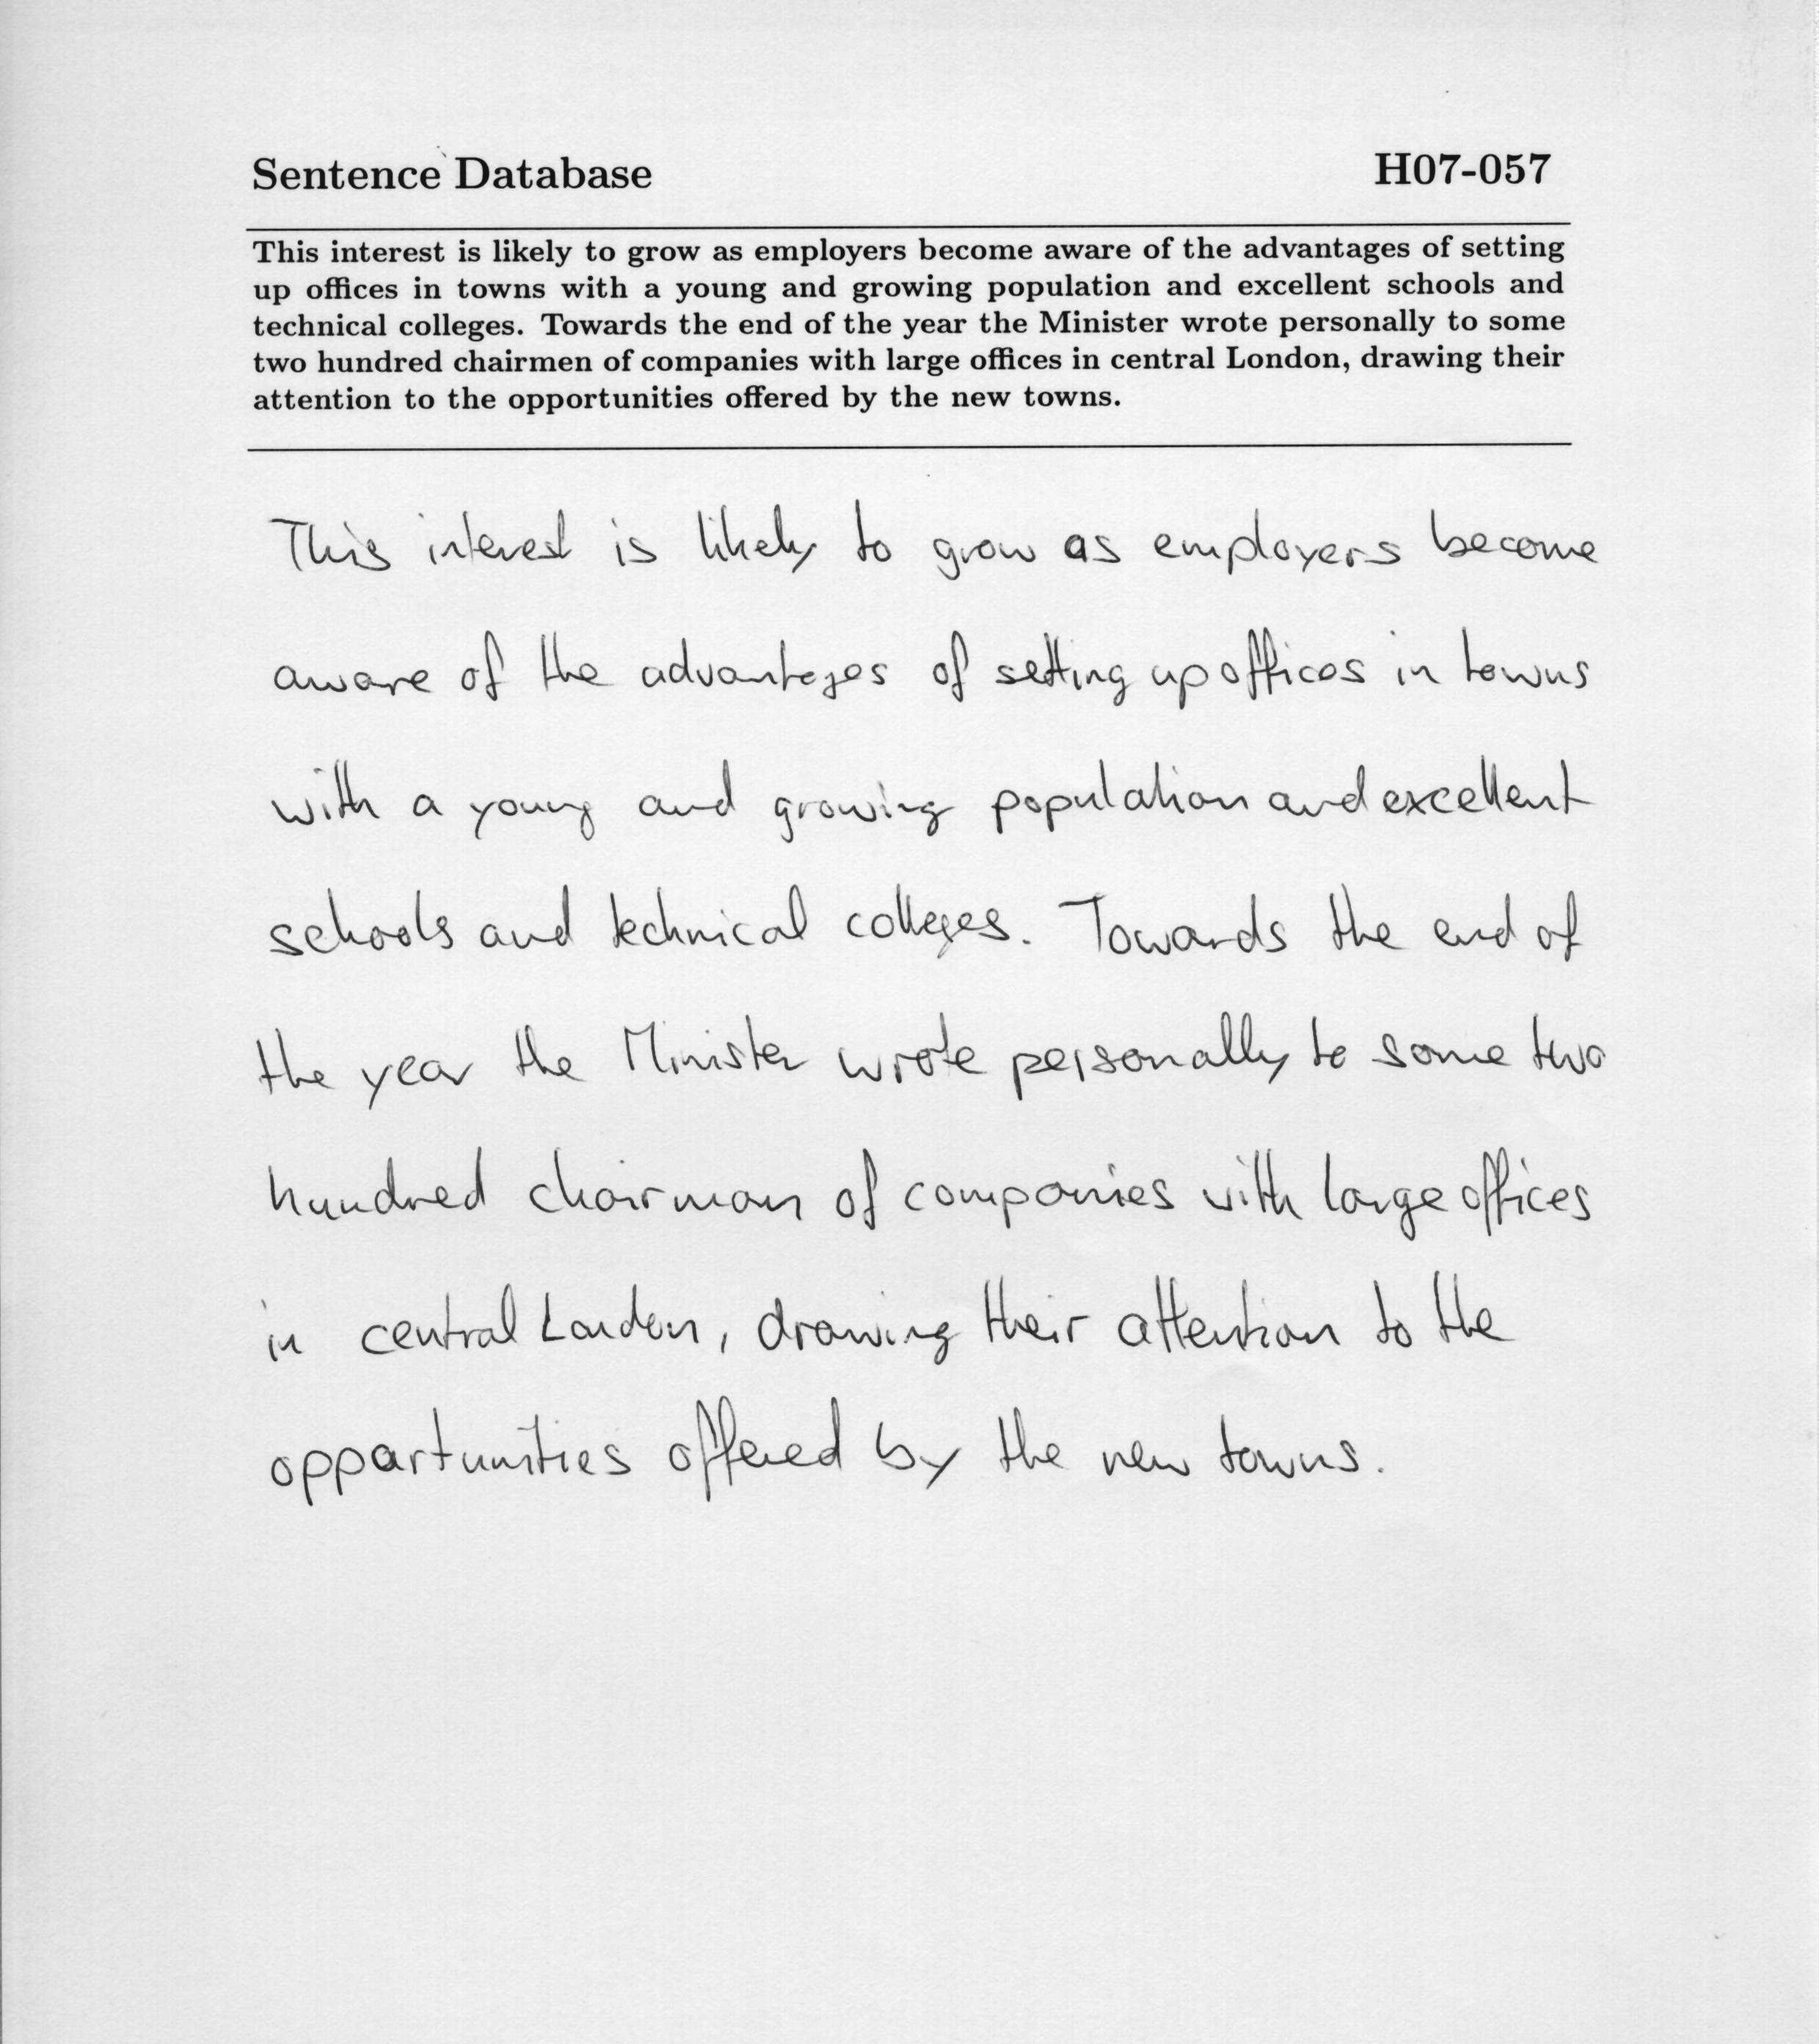 Sentence Database H07-057
This interest is likely to grow as employers become aware of the advantages of setting
up offices in towns with a young and growing population and excellent schools and
technical colleges. Towards the end of the year the Minister wrote personally to some
two hundred chairmen of companies with large offices in central London, drawing their
attention to the opportunities offered by the new towns.
This interest is likely to grow as employers become
aware of the advantages of setting up offices in towns
with a young and growing population and excellent
schools and technical colleges. Towards the end of
the year the Minister wrote personally to some two
hundred chairman of companies with large offices
in central London, drawing their attention to the
opportunities offered by the new towns.